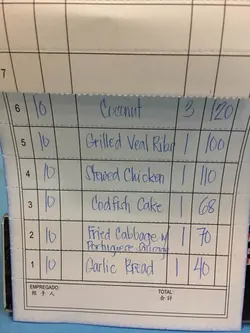 7
6 10 Coconut 3 120
5 10 Grilled Veal Ribs 1 100
4 10 Stewed Chicken 1 110
3 10 Codfish Cake 1 68
2 10 Fried Cabbage w/ Portuguese Sausage 1 70
1 10 Garlic Bread 1 40
EMPREGADO: TOTAL:
經手人 合計